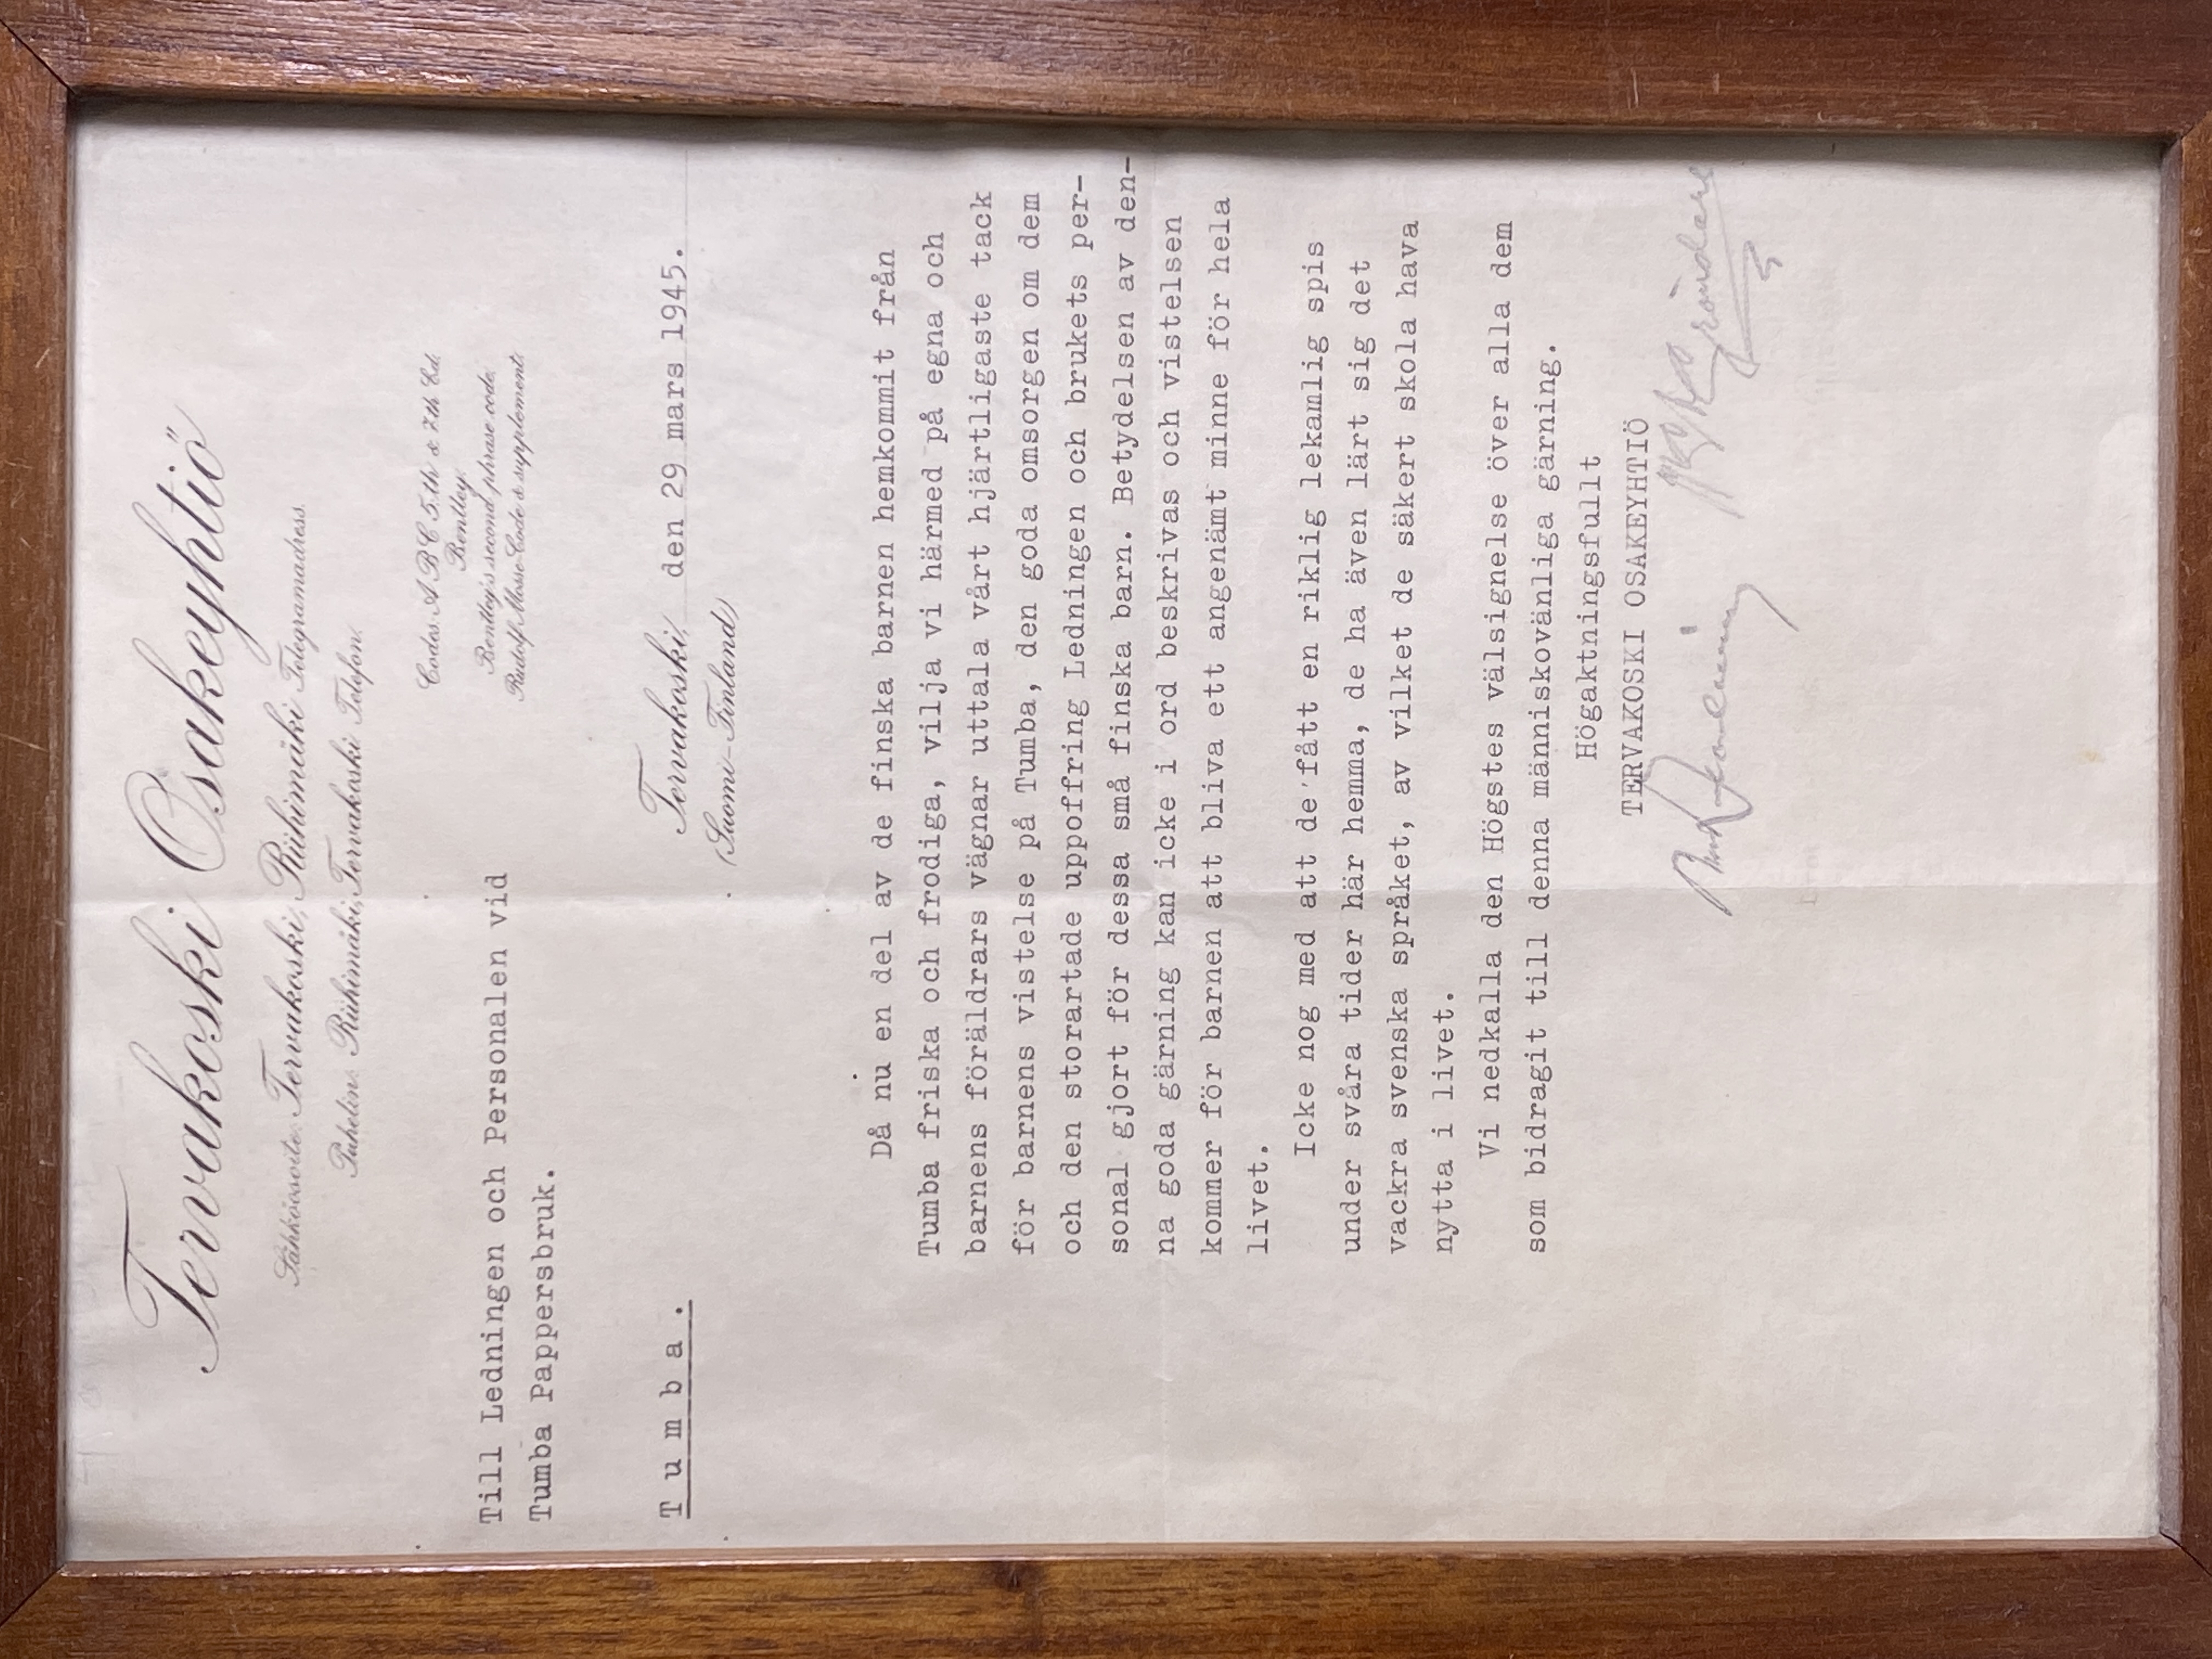 Tervakoski Osakeyhtiö
Sähköosoite: Tervakoski, Riihimäki Telegramadress.
Puhelin: Riihimäki, Tervakoski Telefon.
Codes: A B C 5.th & 7.th Ed.
Bentley.
Bentley's second phrase code.
Rudolf Mosse-Code & supplement.
Till Ledningen och Personalen vid
Tumba Pappersbruk.
Tervakoski, den 29 mars 1945.
(Suomi-Finland)
Tumba.
Då nu en del av de finska barnen hemkommit från
Tumba friska och frodiga, vilja vi härmed på egna och
barnens föräldrars vägnar uttala vårt hjärtligaste tack
för barnens vistelse på Tumba, den goda omsorgen om dem
och den storartade uppoffring Ledningen och brukets per-
sonal gjort för dessa små finska barn. Betydelsen av den-
na goda gärning kan icke i ord beskrivas och vistelsen
kommer för barnen att bliva ett angenämt minne för hela
livet.
Icke nog med att de fått en riklig lekamlig spis
under svåra tider här hemma, de ha även lärt sig det
vackra svenska språket, av vilket de säkert skola hava
nytta i livet.
Vi nedkalla den Högstes välsignelse över alla dem
som bidragit till denna människovänliga gärning.
Högaktningsfullt
TERVAKOSKI OSAKEYHTIÖ